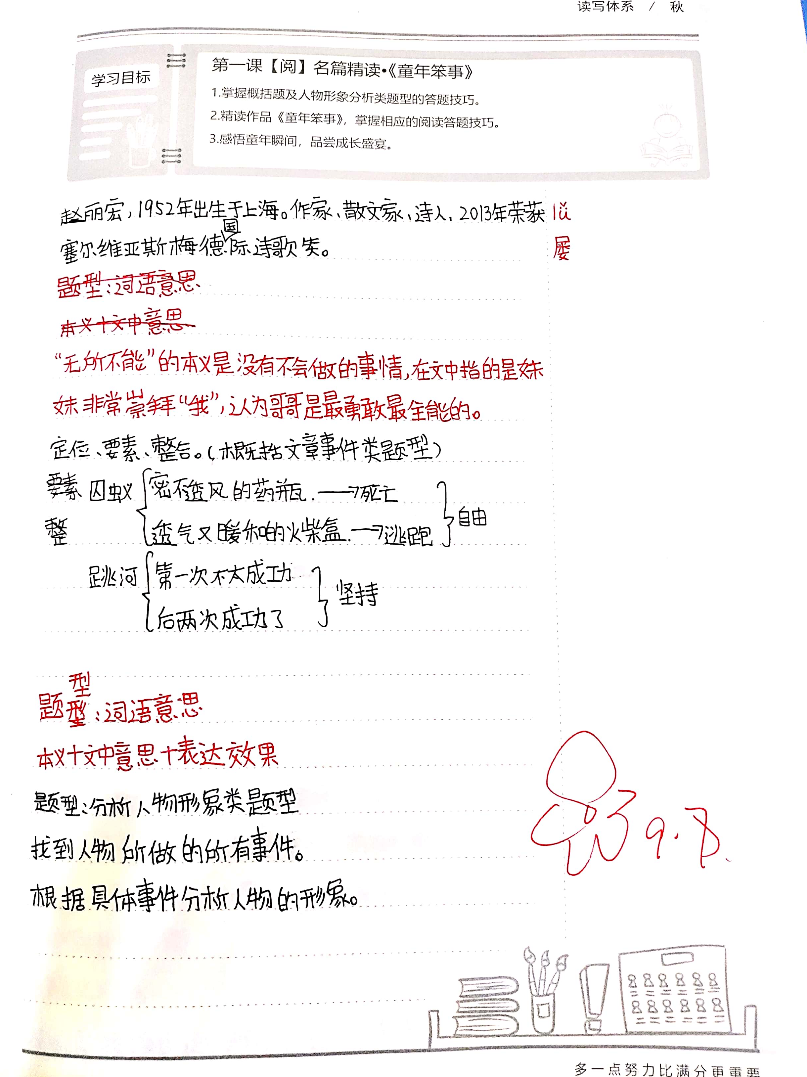 读写体系 / 秋
学习目标
第一课【阅】名篇精读·《童年笨事》
1.掌握概括题及人物形象分析类题型的答题技巧。
2.精读作品《童年笨事》,掌握相应的阅读答题技巧。
3.感悟童年瞬间,品尝成长盛宴。
赵丽宏,1952年出生于上海。作家、散文家、诗人,2013年荣获
塞尔维亚斯梅德国际诗歌奖。
屡
题型:词语意思
本义+文中意思
“无所不能”的本义是没有不会做的事情,在文中指的是妹
妹非常崇拜“我”,认为哥哥是最勇敢最全能的。
定位、要素、整合。(概括文章事件类题型)
要素 囚蚁 密不透风的药瓶.→死亡
整 透气又暖和的火柴盒.→逃跑 自由
跳河 第一次不太成功
后两次成功了 坚持
型
题型:词语意思
本义+文中意思+表达效果
题型:分析人物形象类题型
找到人物所做的所有事件。
根据具体事件分析人物的形象。
9.7.
多一点努力比满分更重要